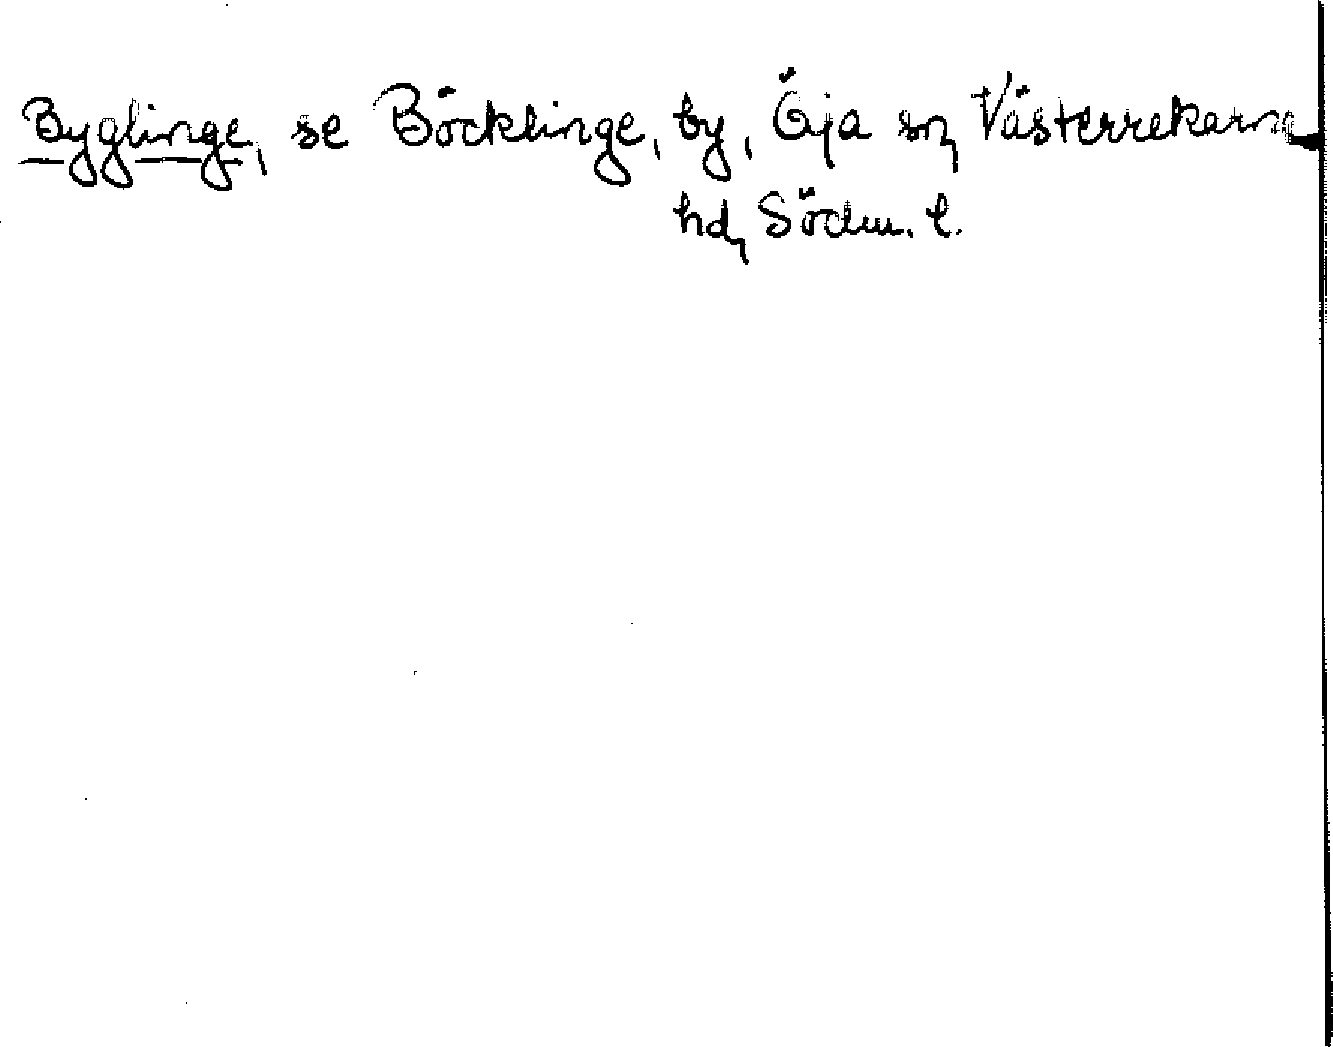 Byglinge, se Böcklinge, by, Öja sn, Västerrekarne
hd, Södm. l.